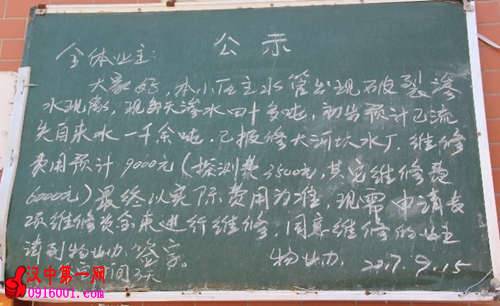 公示
全体业主:
大家好,本小区主水管出现破裂渗
水现象,现每天渗水四十多吨,初步预计已流
失自来水一千余吨,已报修大河坎水厂,维修
费用预计9000元(探测费3500元,其它维修费
6000元)最终以实际费用为准,现需申请专
项维修资金来进行维修,同意维修的业主
请到物业办签字。 物业办 2017.9.15
间3天
汉中第一网
0916001.com